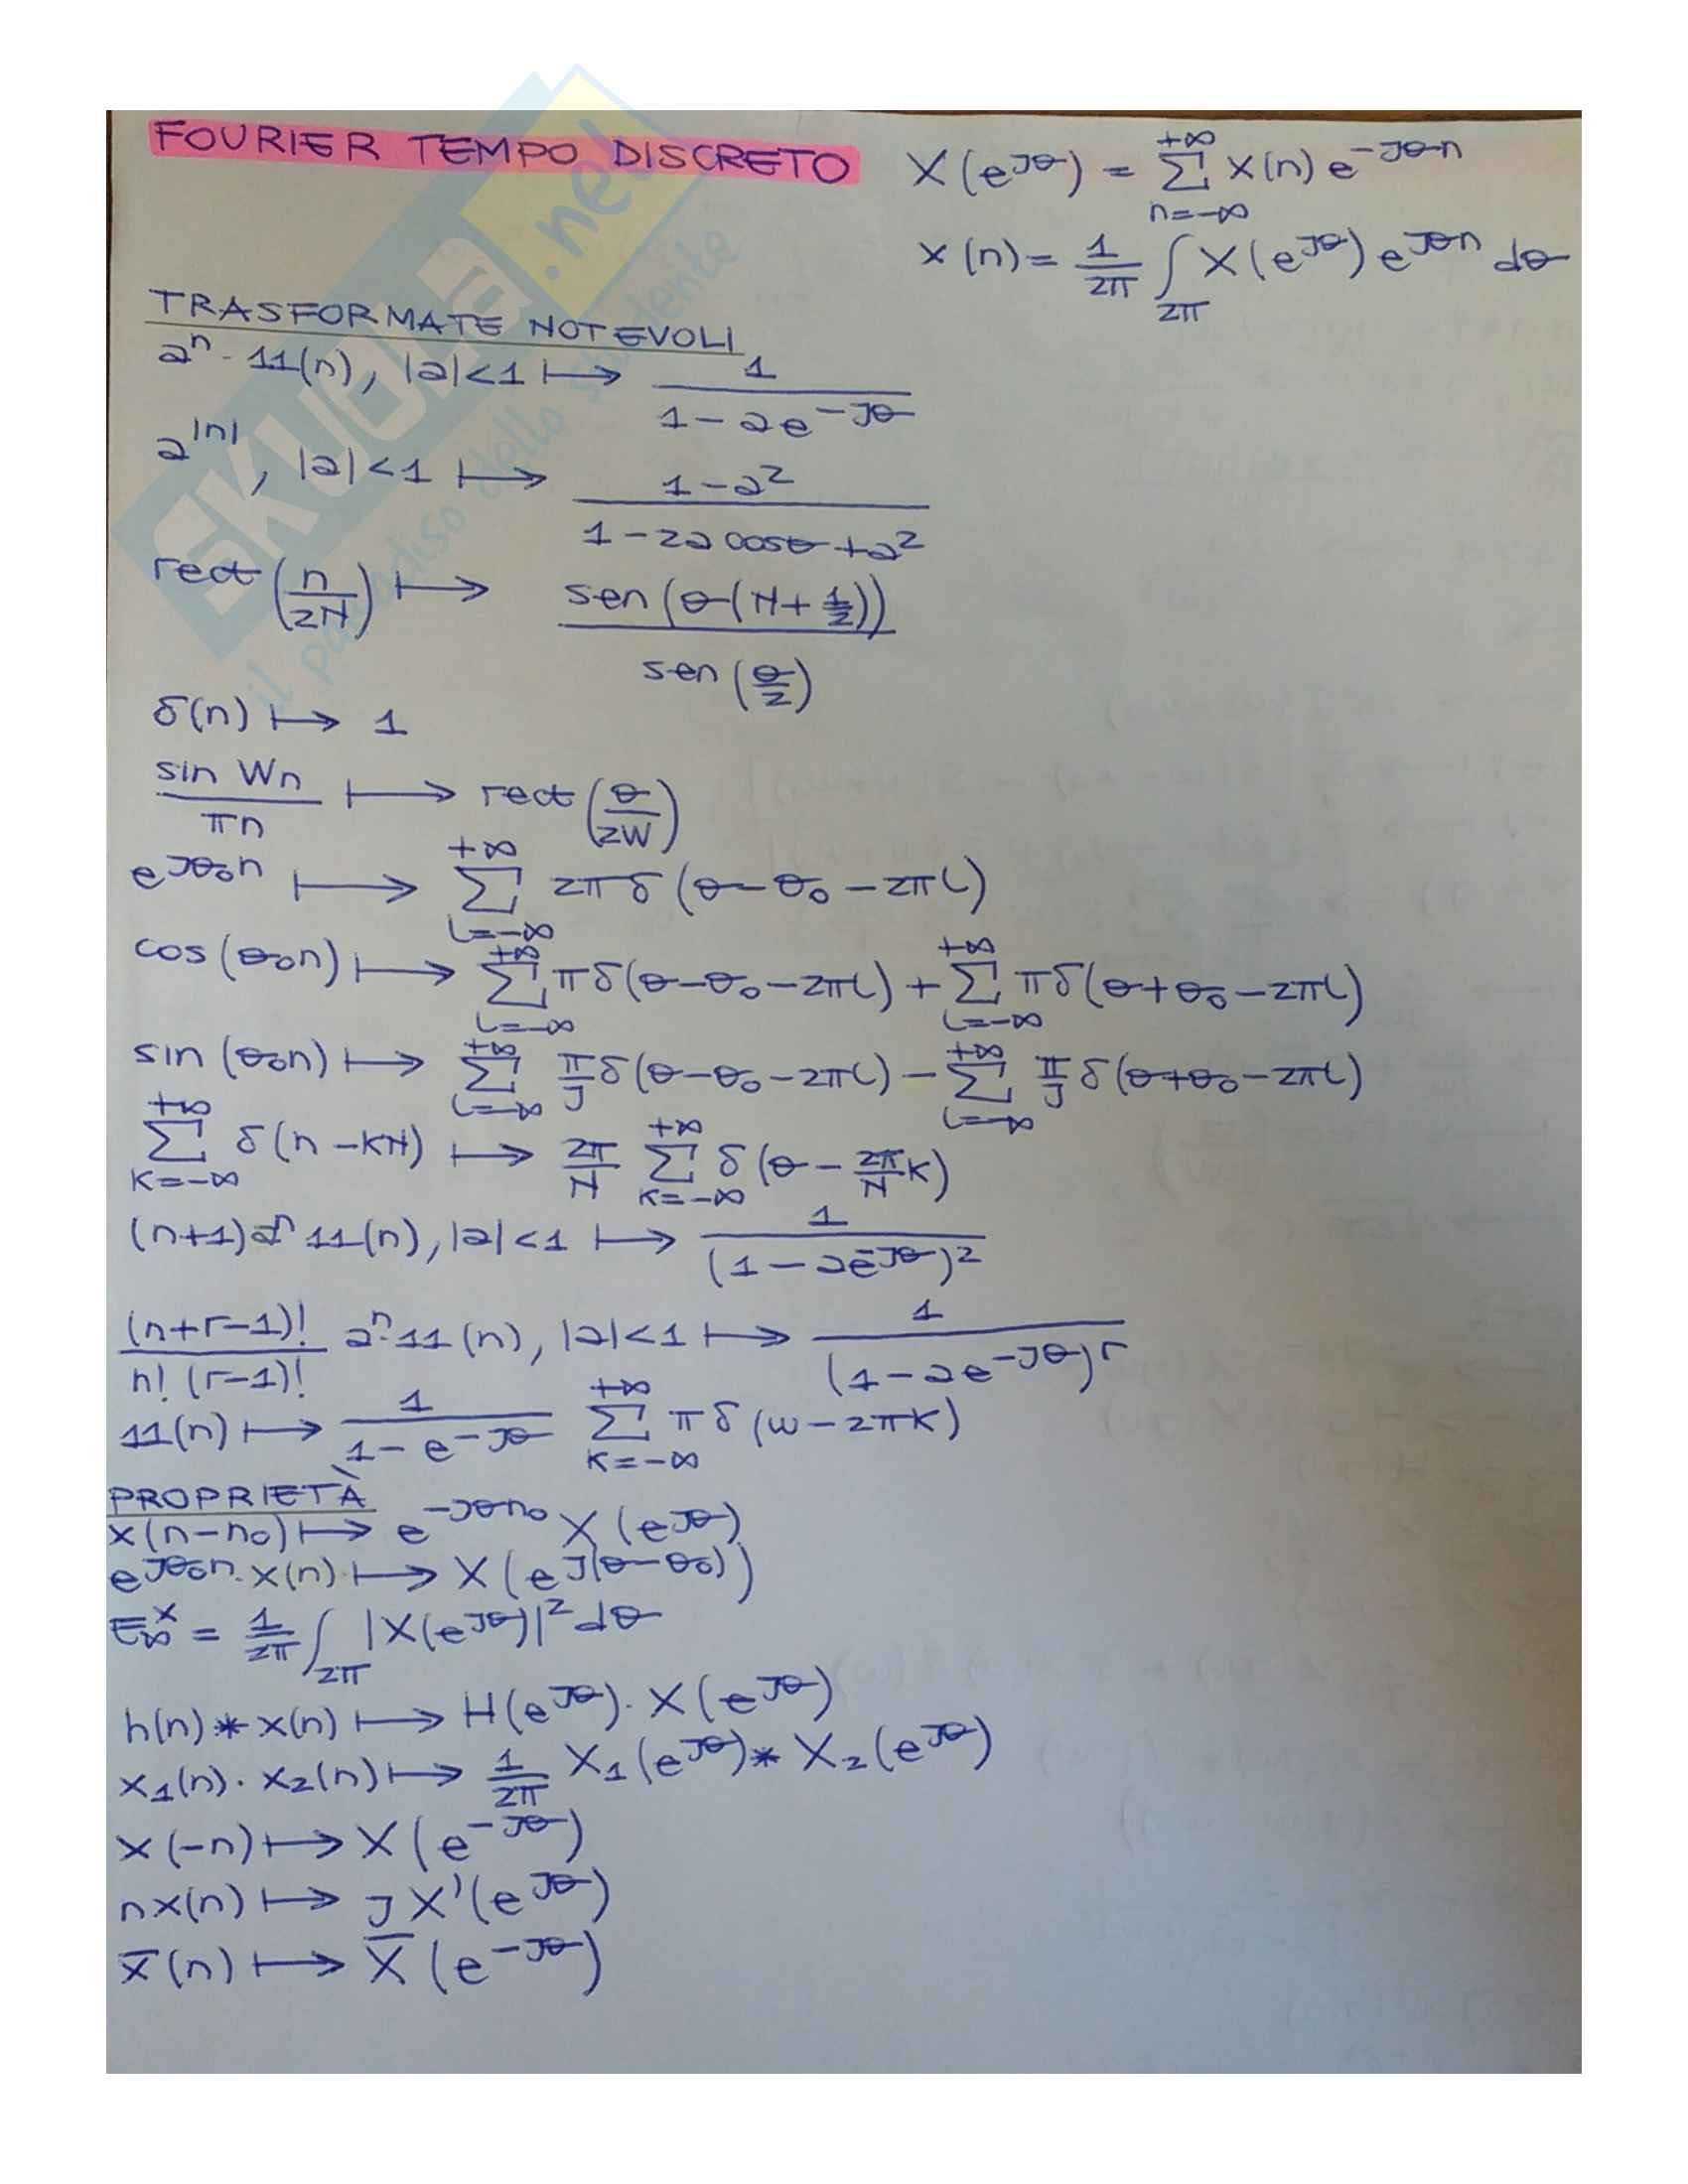 FOURIER TEMPO DISCRETO
X(e^{jθ}) = Σ_{n=-∞}^{+∞} x(n) e^{-jθn}
x(n) = 1/2π ∫_{2π} X(e^{jθ}) e^{jθn} dθ
TRASFORMATE NOTEVOLI
a^n · 11(n), |a|<1 ↦ 1/(1-ae^{-jθ})
a^{|n|}, |a|<1 ↦ (1-a²)/(1-2a cosθ+a²)
rect(n/2N) ↦ sen(θ(N+1/2))/sen(θ/2)
δ(n) ↦ 1
sin Wn/πn ↦ rect(θ/2W)
e^{jθ₀n} ↦ Σ_{l=-∞}^{+∞} 2πδ(θ-θ₀-2πl)
cos(θ₀n) ↦ Σ_{l=-∞}^{+∞} πδ(θ-θ₀-2πl) + Σ_{l=-∞}^{+∞} πδ(θ+θ₀-2πl)
sin(θ₀n) ↦ Σ_{l=-∞}^{+∞} π/j δ(θ-θ₀-2πl) - Σ_{l=-∞}^{+∞} π/j δ(θ+θ₀-2πl)
Σ_{k=-∞}^{+∞} δ(n-kN) ↦ 2π/N Σ_{k=-∞}^{+∞} δ(θ-2π/N k)
(n+1)a^n 11(n), |a|<1 ↦ 1/(1-ae^{-jθ})²
(n+r-1)!/(n!(r-1)!) a^n·11(n), |a|<1 ↦ 1/(1-ae^{-jθ})^r
11(n) ↦ 1/(1-e^{-jθ}) Σ_{k=-∞}^{+∞} πδ(w-2πk)
PROPRIETÀ
x(n-n₀) ↦ e^{-jθn₀} X(e^{jθ})
e^{jθ₀n}·x(n) ↦ X(e^{j(θ-θ₀)})
E_∞^x = 1/2π ∫_{2π} |X(e^{jθ})|² dθ
h(n)*x(n) ↦ H(e^{jθ})·X(e^{jθ})
x₁(n)·x₂(n) ↦ 1/2π X₁(e^{jθ})*X₂(e^{jθ})
x(-n) ↦ X(e^{-jθ})
nx(n) ↦ jX'(e^{jθ})
x̅(n) ↦ X̅(e^{-jθ})
SKUOLA.net
il paradiso dello studente